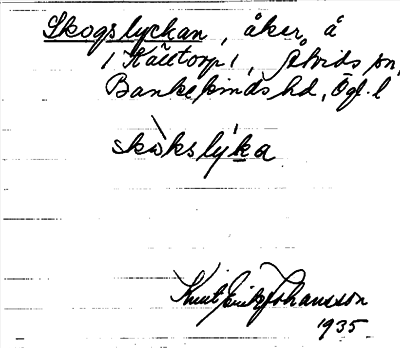 Skogslyckan, åker, å
/ Källtorp /, Åtvids sn,
Bankekinds hd, Ögl. l
skòkslýka
Knut Erik Johansson
1935